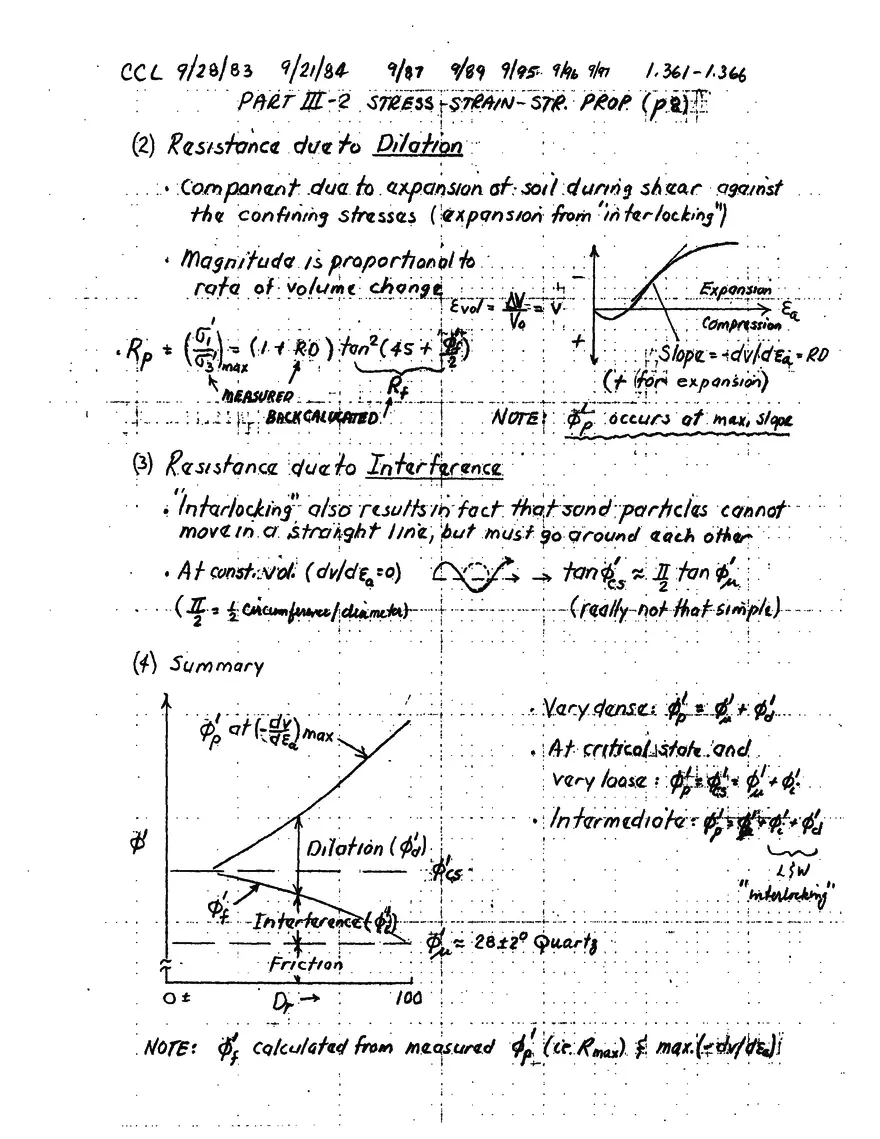 CCL 9/28/83 9/21/84 9/87 9/89 9/95 9/96 9/97 1.361-1.366
PART III-2 STRESS-STRAIN-STR. PROP. (p 2)
(2) Resistance due to Dilation
• Component due to expansion of soil during shear against
the confining stresses (expansion from "interlocking")
• Magnitude is proportional to
rate of volume change
εvol = ΔV/V₀ = V
−
+
Expansion
Compression
εₐ
Slope = -dv/dεₐ = RD
(+ for expansion)
• Rp = (σ₁'/σ₃')max = (1 + RD) tan²(45 + φ'f/2)
Rf
MEASURED
BACKCALCULATED
NOTE: φ'p occurs at max. slope
(3) Resistance due to Interference
• "Interlocking" also results in fact that sand particles cannot
move in a straight line, but must go around each other
• At const. vol. (dv/dεₐ=0) → tan φ'cs ≈ π/2 tan φ'μ
(π/2 = ½ circumference/diameter) (really not that simple)
(4) Summary
φ'p at (-dv/dεₐ)max
φ'
Dilation (φ'd)
φ'cs
φ'f
Interference (φ'i)
φ'μ ≈ 28±2° Quartz
Friction
0± Dr → 100
• Very dense: φ'p = φ'μ + φ'd
• At critical state and
very loose: φ'p = φ'cs = φ'μ + φ'i
• Intermediate: φ'p = φ'μ + φ'i + φ'd
L&W
"interlocking"
NOTE: φ'f calculated from measured φ'p (i.e. Rmax) & max.(-dv/dεₐ)